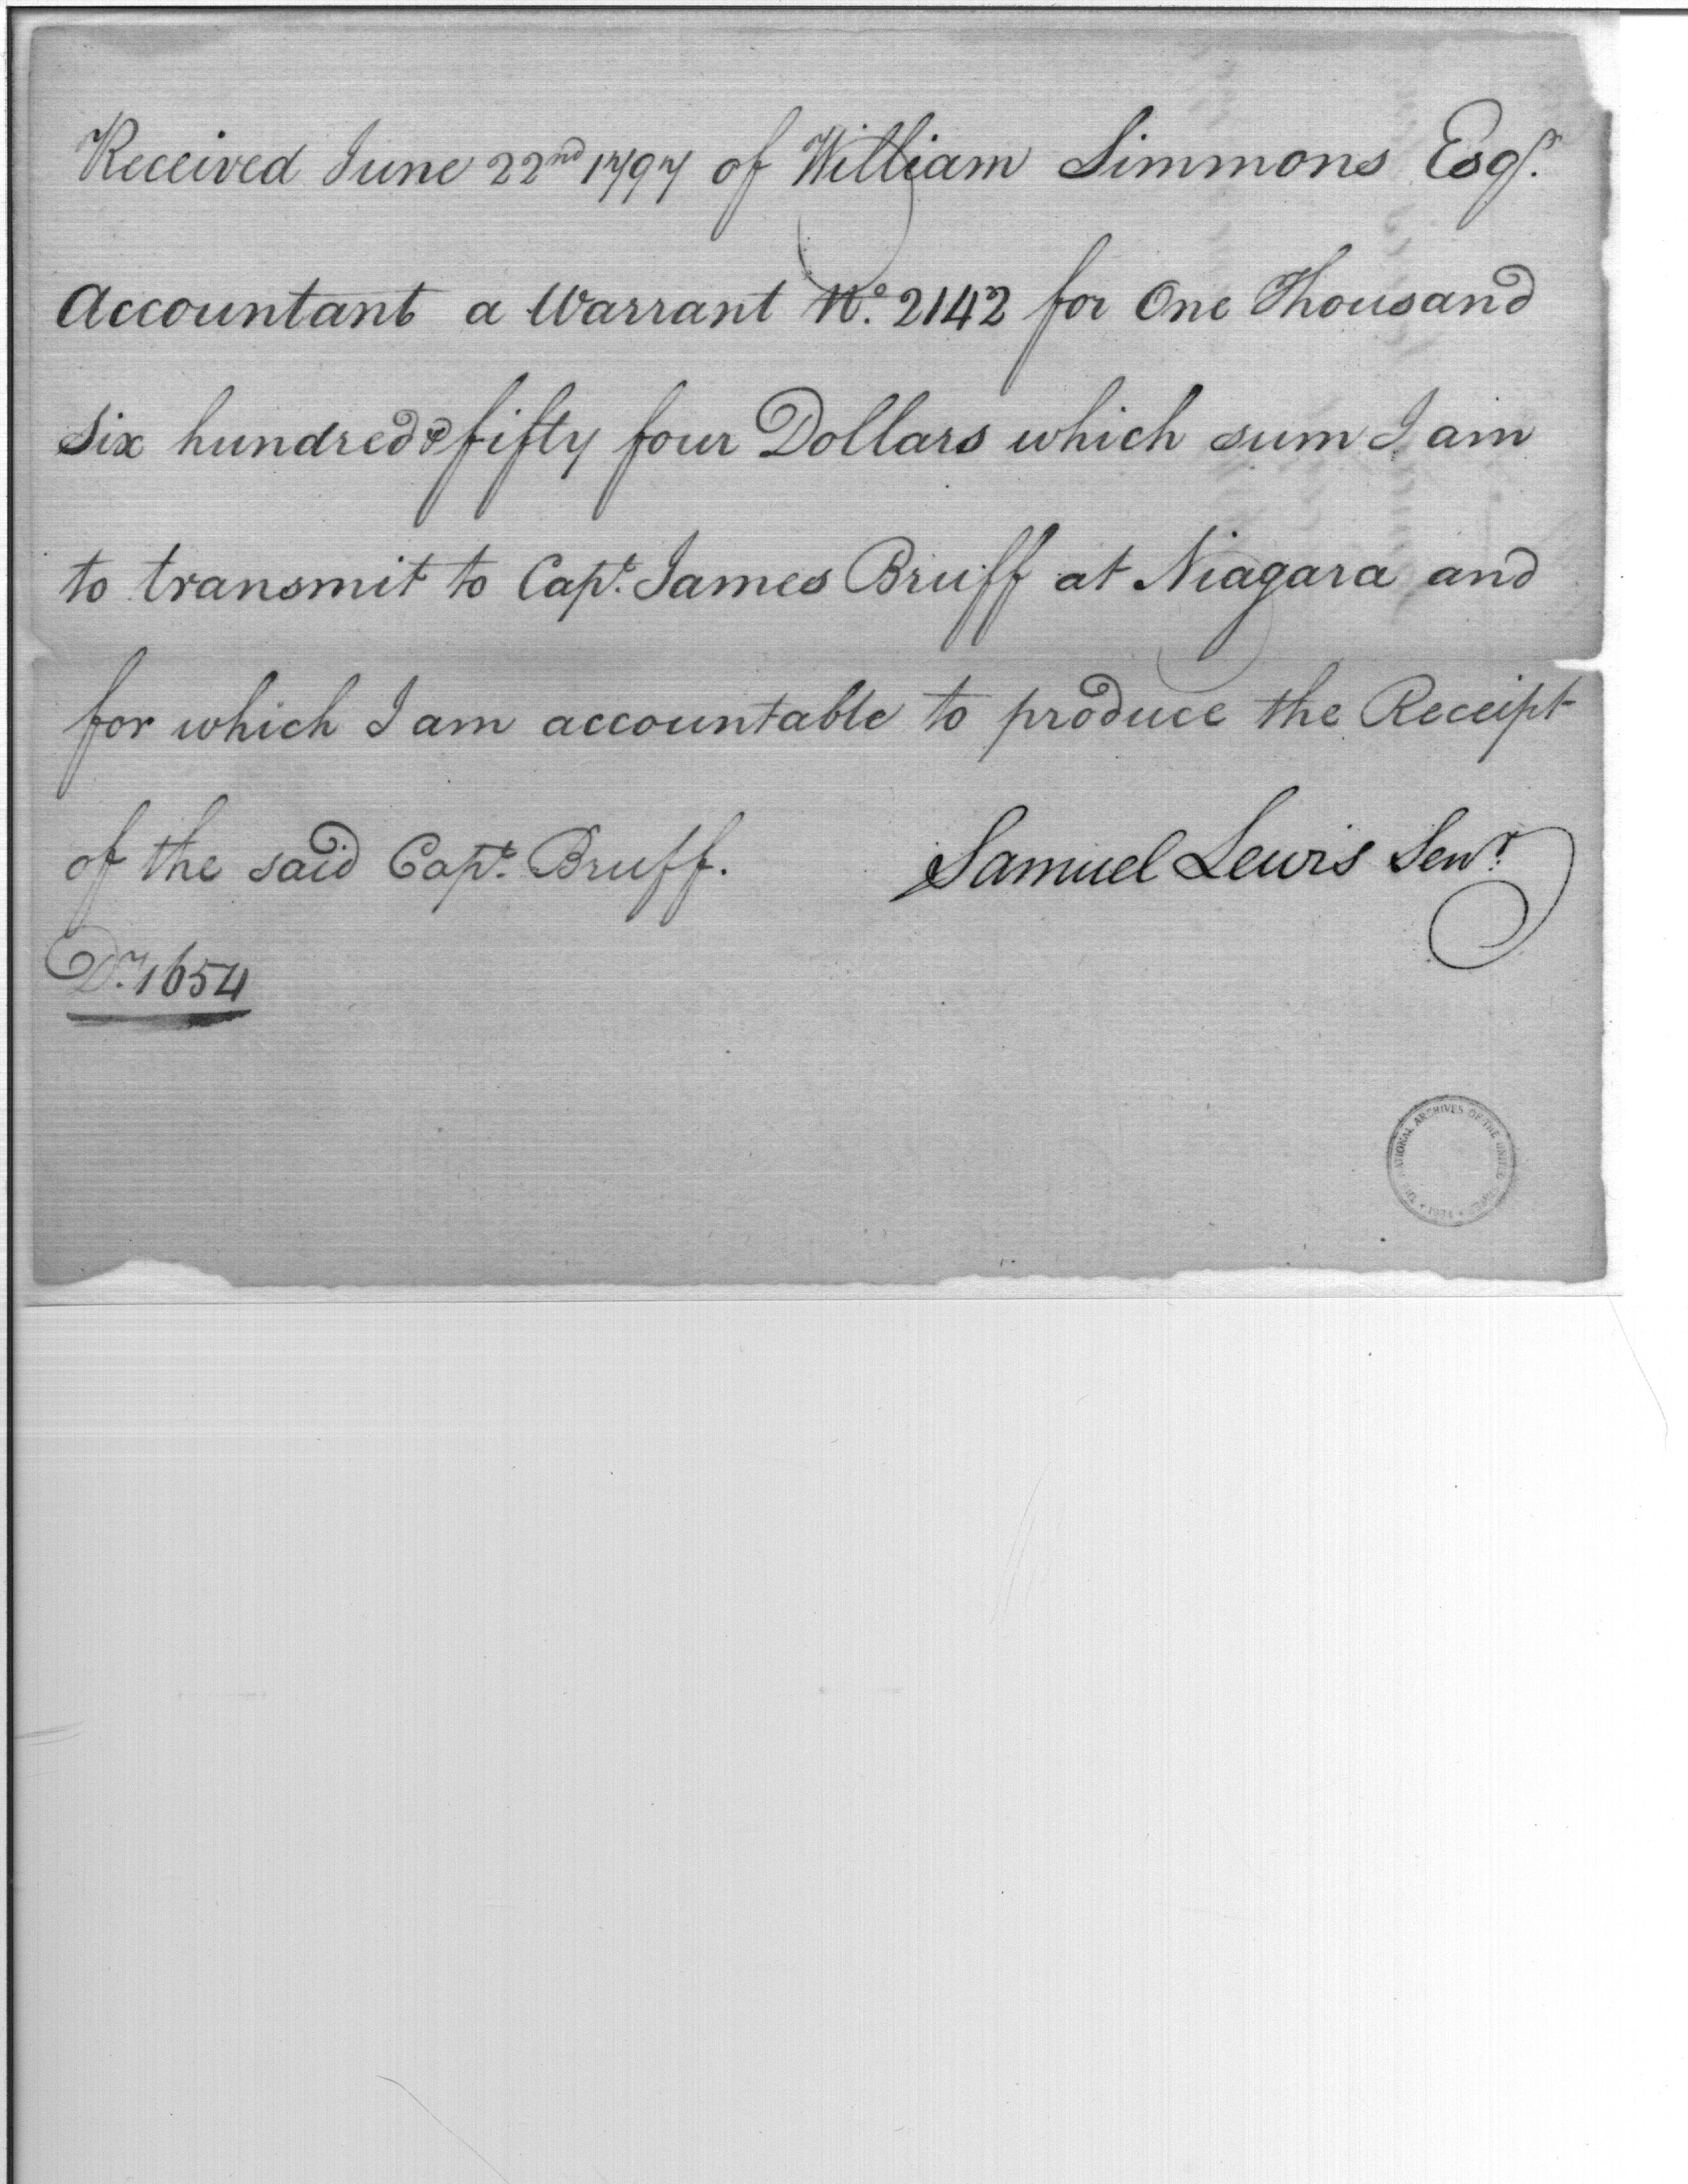 Received June 22nd 1797 of William Simmons Esqr.
Accountant a Warrant No. 2142 for One Thousand
Six hundred & fifty four Dollars which sum I am
to transmit to Capt. James Bruff at Niagara and
for which I am accountable to produce the Receipt
of the said Capt. Bruff. Samuel Lewis Senr.
Drs. 1654
THE NATIONAL ARCHIVES OF THE UNITED STATES • 1934 •